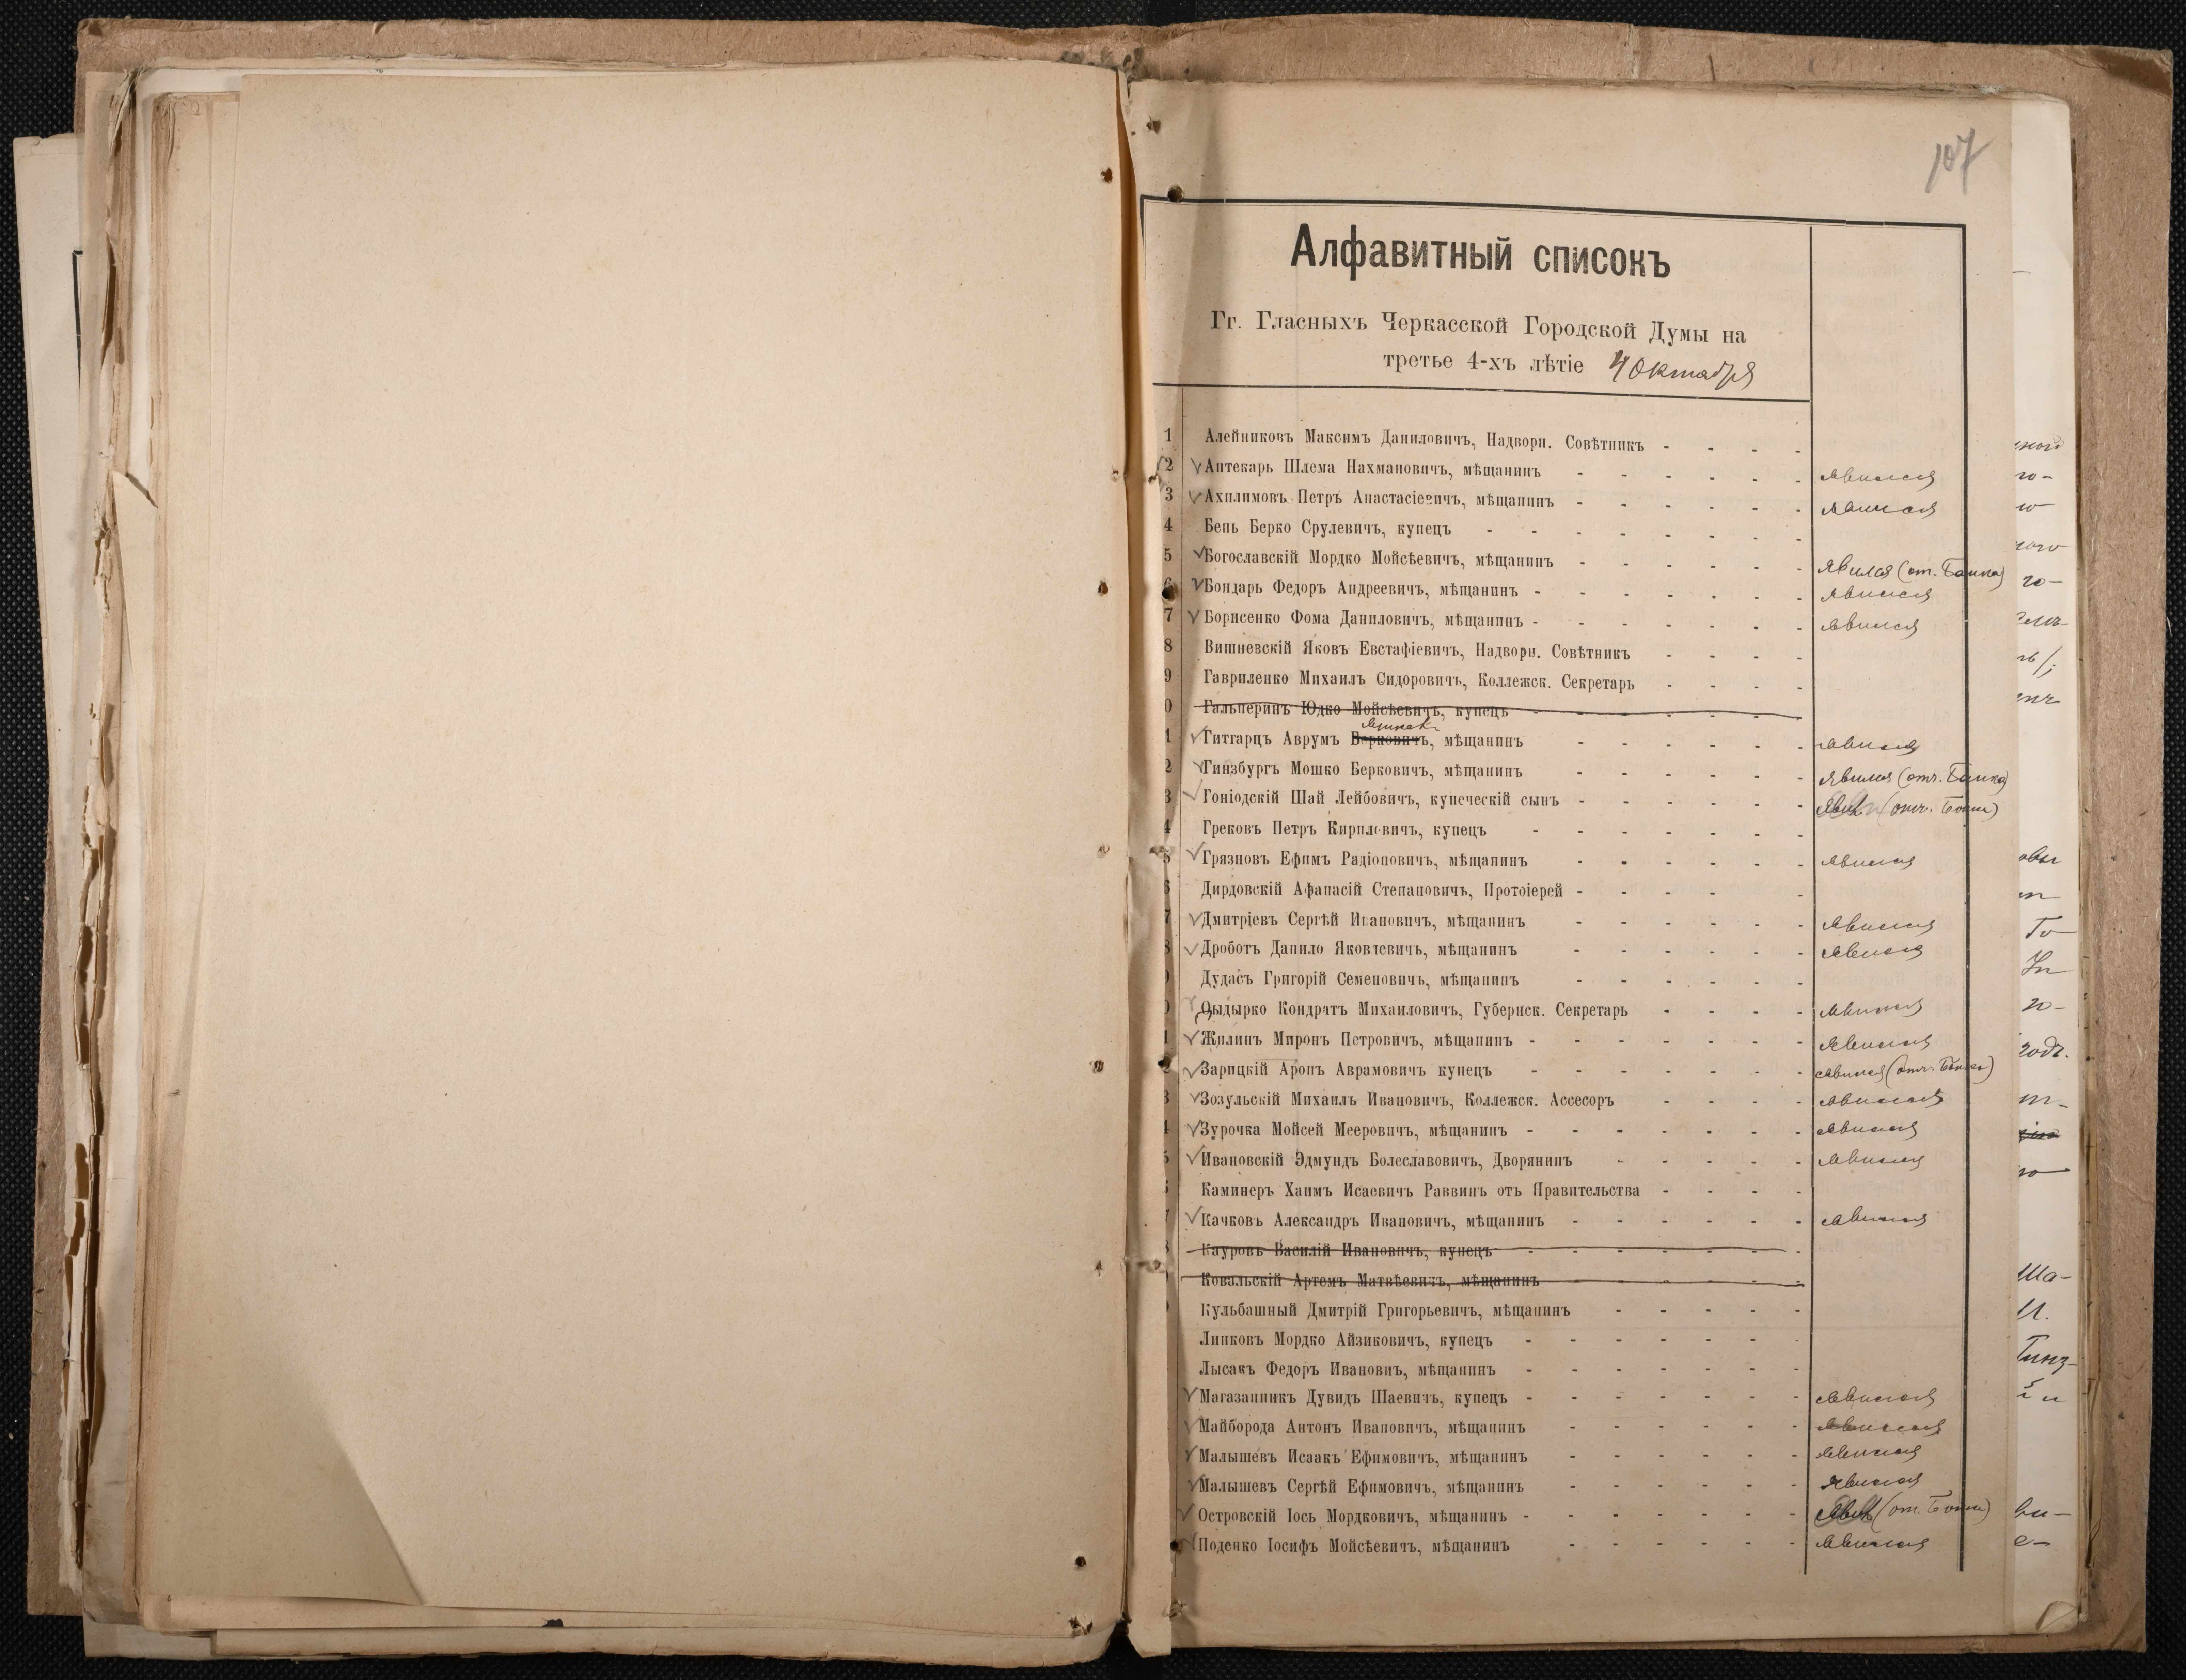 107
Алфавитный списокъ
Гг. Гласныхъ Черкасской Городской Думы на
третье 4-хъ лѣтіе 4 Октября
1 Алейниковъ Максимъ Даниловичъ, Надворн. Совѣтникъ - - - -
2 Аптекарь Шлема Нахмановичъ, мѣщанинъ - - - - - - явился
3 Ахилимовъ Петръ Анастасіевичъ, мѣщанинъ - - - - - - явился
4 Бень Берко Срулевичъ, купецъ - - - - - - - -
5 Богославскій Мордко Мойсѣевичъ, мѣщанинъ - - - - - - явился (от. Банка)
6 Бондарь Федоръ Андреевичъ, мѣщанинъ - - - - - - - явился
7 Борисенко Фома Даниловичъ, мѣщанинъ - - - - - - - явился
8 Вишневскій Яковъ Евстафіевичъ, Надворн. Совѣтникъ - - - -
9 Гавриленко Михаилъ Сидоровичъ, Коллежск. Секретарь - - - -
0 Гальперинъ Юдко Мойсѣевичъ, купецъ - - - - - -
1 Гитгарцъ Аврумъ Берковичъ, мѣщанинъ - - - - - - явился
2 Гинзбургъ Мошко Берковичъ, мѣщанинъ - - - - - - явился (отч. Банка)
3 Гоніодскій Шай Лейбовичъ, купеческій сынъ - - - - - - (отч. Банка)
4 Грековъ Петръ Кириловичъ, купецъ - - - - - - -
5 Грязновъ Ефимъ Радіоновичъ, мѣщанинъ - - - - - - явился
6 Дирдовскій Афанасій Степановичъ, Протоіерей - - - - -
7 Дмитріевъ Сергѣй Ивановичъ, мѣщанинъ - - - - - - явился
8 Дроботъ Данило Яковлевичъ, мѣщанинъ - - - - - - явился
Дудасъ Григорій Семеновичъ, мѣщанинъ - - - - - -
Дыдырко Кондратъ Михаиловичъ, Губернск. Секретарь - - - - явился
Жилинъ Миронъ Петровичъ, мѣщанинъ - - - - - - - явился
Зарицкій Аронъ Аврамовичъ купецъ - - - - - - - явился (отч. Банка)
3 Зозульскій Михаилъ Ивановичъ, Коллежск. Ассесоръ - - - - явился
4 Зурочка Мойсей Мееровичъ, мѣщанинъ - - - - - - - явился
5 Ивановскій Эдмундъ Болеславовичъ, Дворянинъ - - - - - явился
Каминеръ Хаимъ Исаевичъ Раввинъ отъ Правительства - - - -
Качковъ Александръ Ивановичъ, мѣщанинъ - - - - - - явился
Кауровъ Василій Ивановичъ, купецъ - - - - - - -
Ковальскій Артемъ Матвѣевичъ, мѣщанинъ - - - - - -
Кульбашный Дмитрій Григорьевичъ, мѣщанинъ - - - - -
Линковъ Мордко Айзиковичъ, купецъ - - - - - - -
Лысакъ Федоръ Ивановиъ, мѣщанинъ - - - - - - -
Магазанникъ Дувидъ Шаевичъ, купецъ - - - - - - - явился
Майборода Антонъ Ивановичъ, мѣщанинъ - - - - - - явился
Малышевъ Исаакъ Ефимовичъ, мѣщанинъ - - - - - - явился
Малышевъ Сергѣй Ефимовичъ, мѣщанинъ - - - - - - явился
Островскій Іось Мордковичъ, мѣщанинъ - - - - - - - (от. Банка)
Поденко Іосифъ Мойсѣевичъ, мѣщанинъ - - - - - - явился